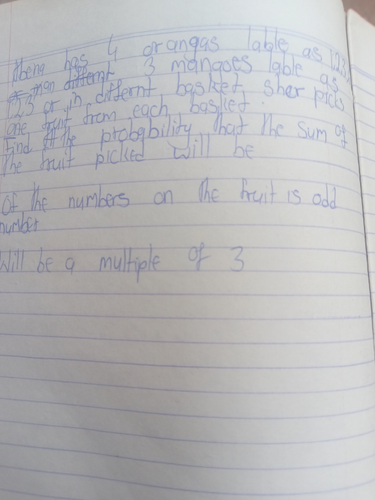 Abena has 4 orangas lable as 1,2,3,
differnt 3 mangoes lable as
123 or in differnt basket, sher picks
one fruit from each basket.
find the probability that the sum of
the fruit picked will be
Of the numbers on the fruit is odd
number
Will be a multiple of 3